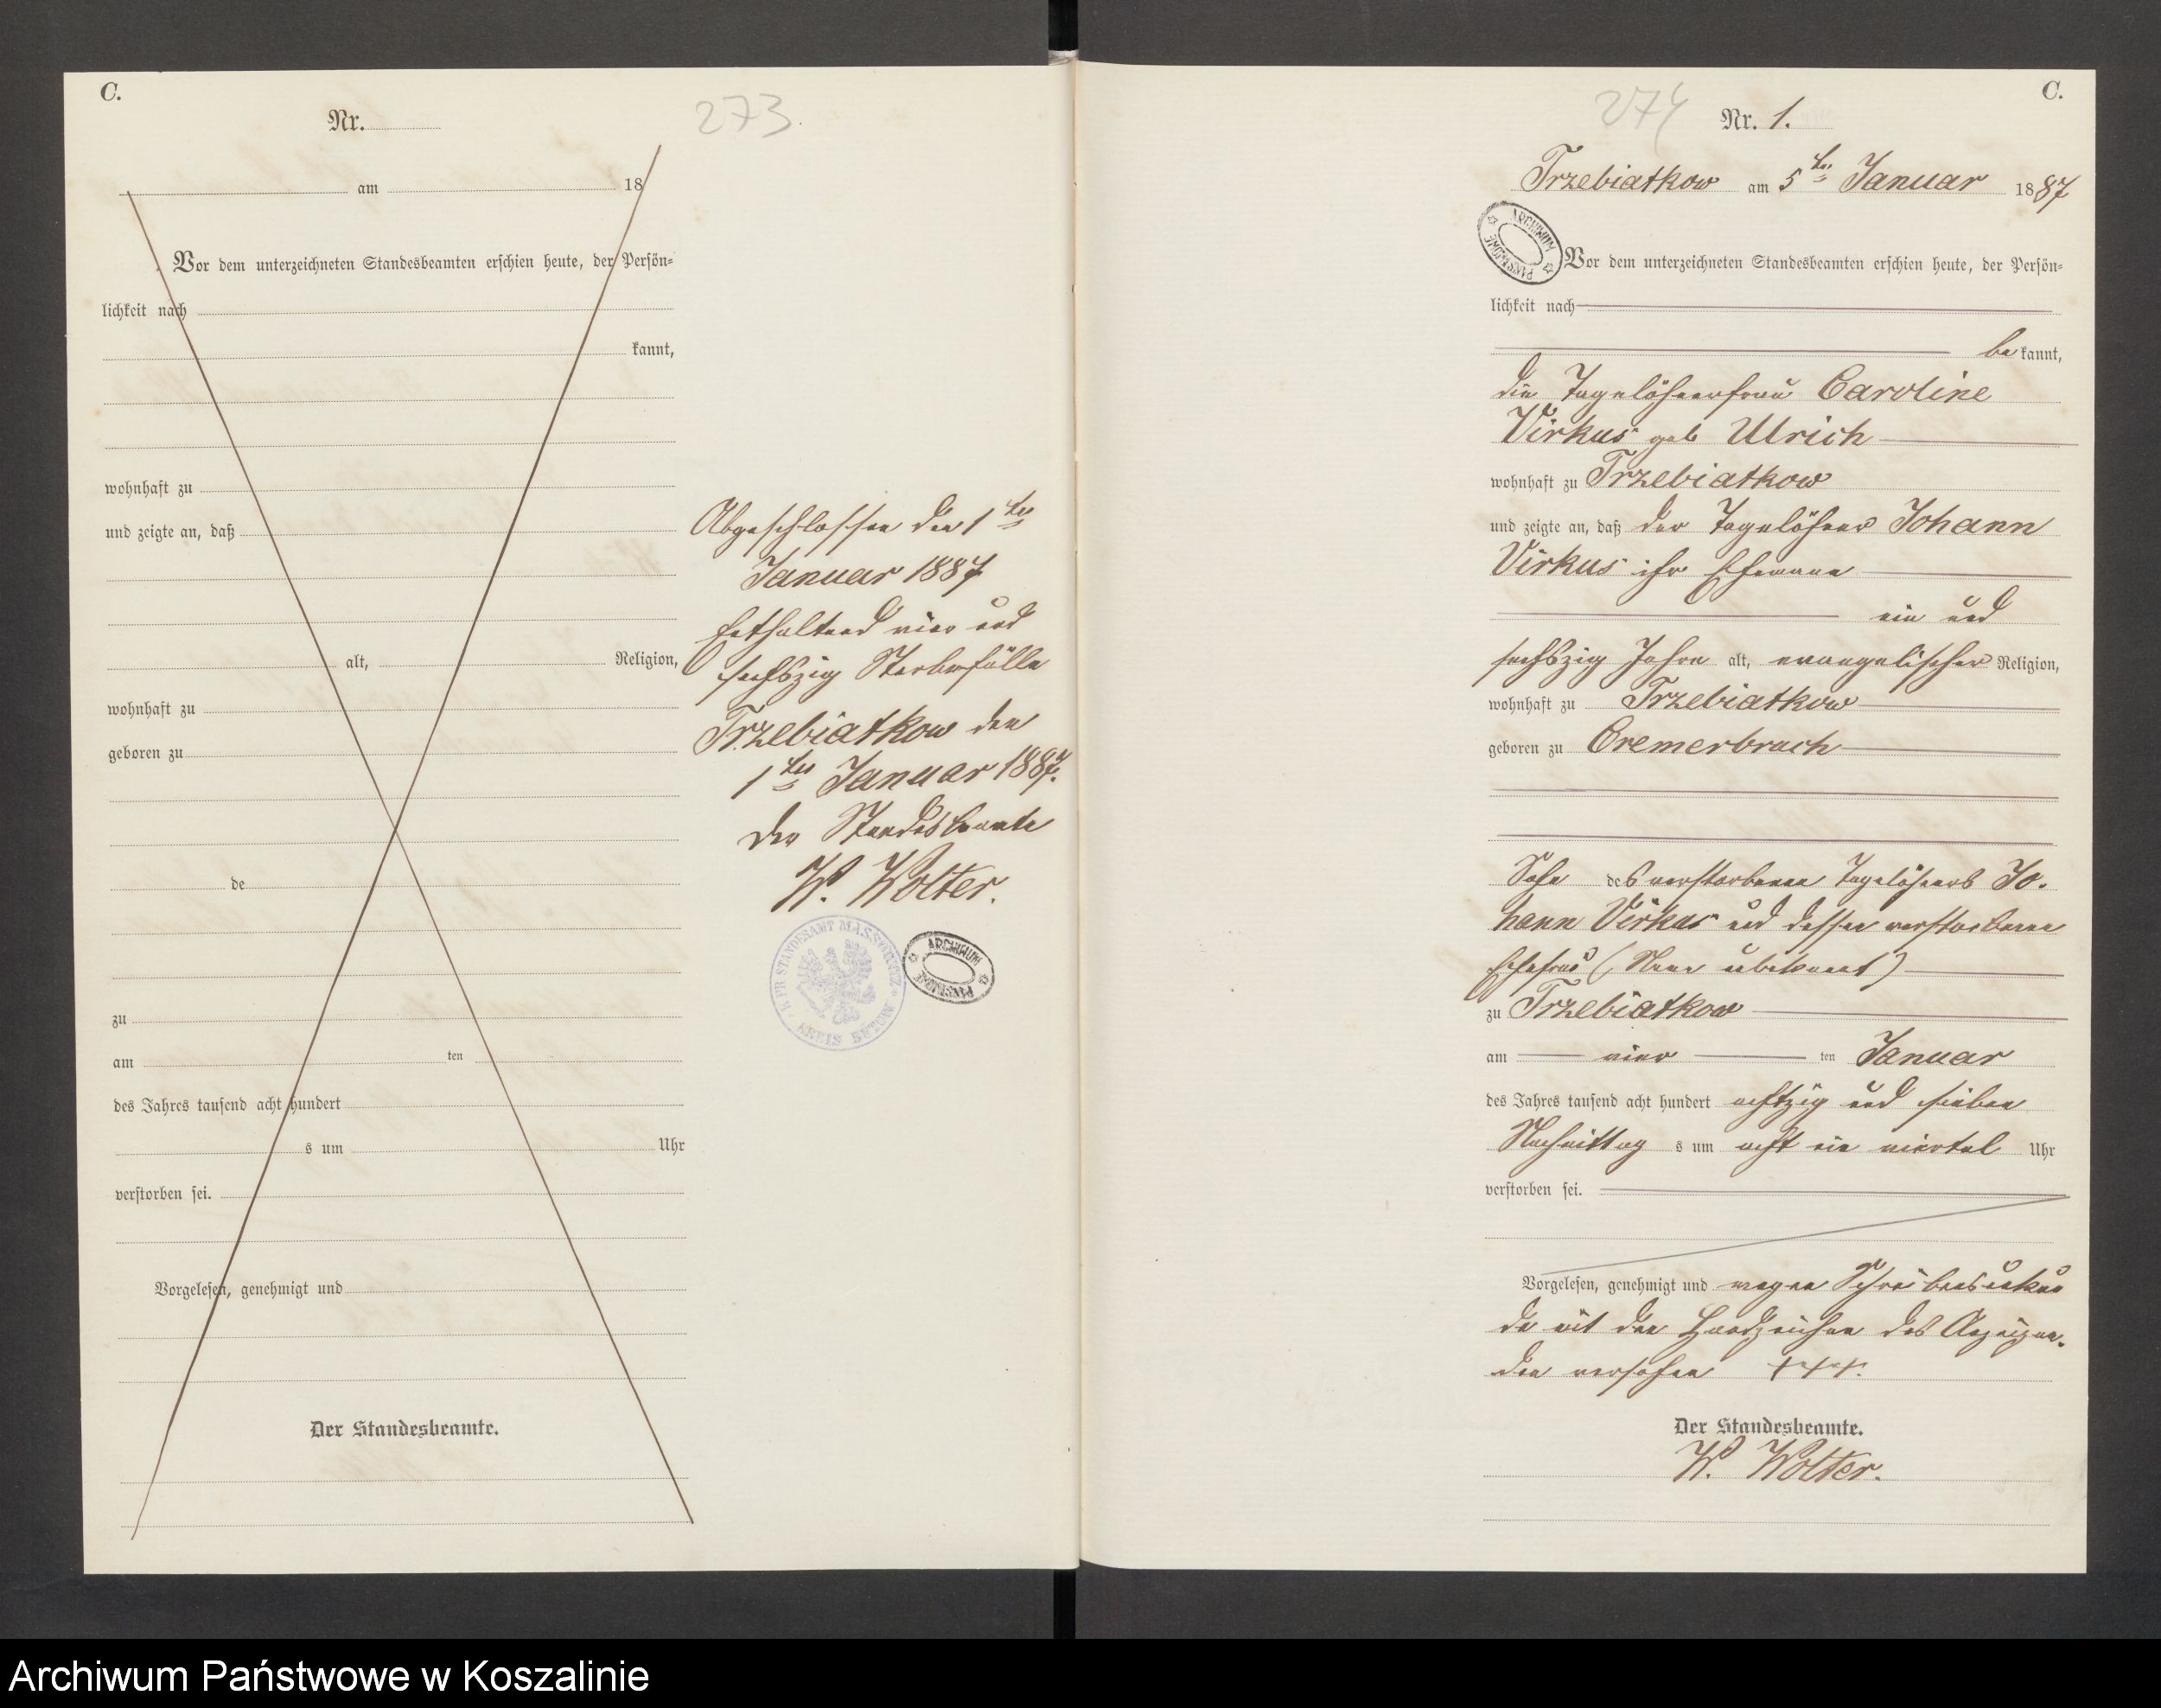 C.
Nr.
273.
am 18
Vor dem unterzeichneten Standesbeamten erschien heute, der Persön=
lichkeit nach
kannt,
wohnhaft zu
und zeigte an, daß
alt, Religion,
wohnhaft zu
geboren zu
de
zu
am ten
des Jahres tausend acht hundert
s um Uhr
verstorben sei.
Vorgelesen, genehmigt und
Der Standesbeamte.
Abgeschlossen den 1ten
Januar 1887
Enthaltend vier und
sechszig Sterbefälle
Trzebiatkow den
1ten Januar 1887.
Der Standesbeamte
W. Wolter.
KPR STANDESAMT MASSOWITZ
KREIS BÜTOW
ARCHIWUM
PAŃSTWOWE
274
C.
Nr. 1.
Trzebiatkow am 5ten Januar 1887
ARCHIWUM
PAŃSTWOWE
Vor dem unterzeichneten Standesbeamten erschien heute, der Persön=
lichkeit nach
be kannt,
die Tagelöhnerfrau Caroline
Virkus geb Ulrich
wohnhaft zu Trzebiatkow
und zeigte an, daß der Tagelöhner Johann
Virkus ihr Ehemann
ein und
sechszig Jahre alt, evangelischer Religion,
wohnhaft zu Trzebiatkow
geboren zu Cremerbruch
Sohn des verstorbenen Tagelöhners Jo.
hann Virkus und dessen verstorbenen
Ehefrau (Name unbekannt)
zu Trzebiatkow
am vier ten Januar
des Jahres tausend acht hundert achtzig und sieben
Nachmittag s um acht ein viertel Uhr
verstorben sei.
Vorgelesen, genehmigt und wegen Schreibensunkun
de mit den Handzeichen des Anzeigen.
den versehen +++.
Der Standesbeamte.
W. Wolter.
Archiwum Państwowe w Koszalinie